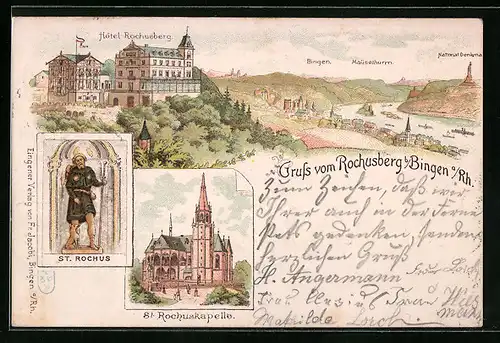 Hôtel Rochusberg.
Bingen.
Mäusethurm.
National Denkmal
Gruß vom Rochusberg b/Bingen a/Rh.
ST. ROCHUS
St. Rochuskapelle.
Eigener Verlag von
Bingen a/Rh.
Zum Zeichen, daß wir
Ihrer auch in der Ferne
stets gedenken, senden
herzlichen Gruß
H. Angermann
Frau
Frau
Mathilde Lorch